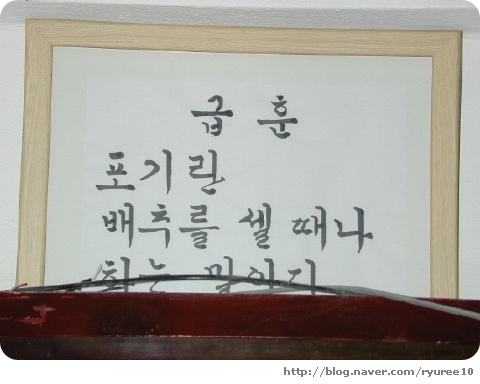 급 훈
포기란
배추를 셀 때나
하는 말이다
http://blog.naver.com/ryuree10